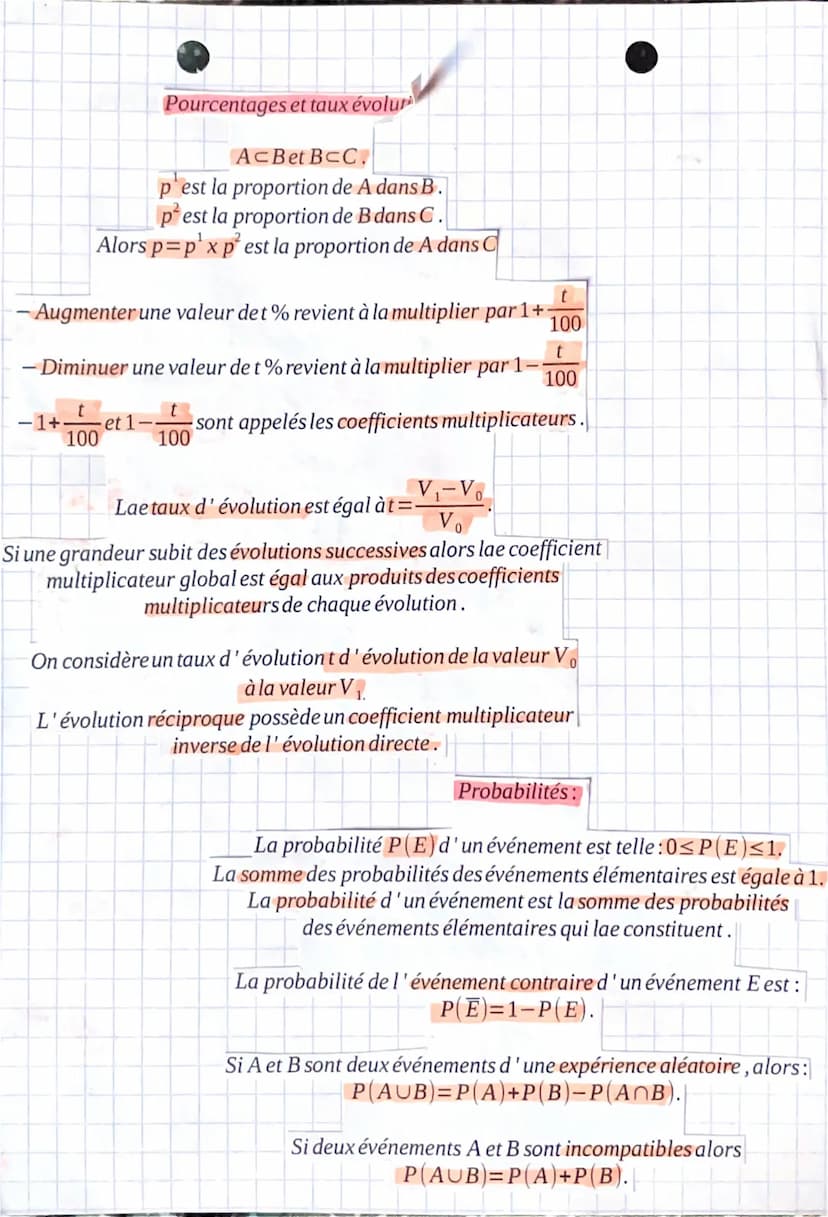 Pourcentages et taux évoluti
A⊂B et B⊂C.
p¹ est la proportion de A dans B.
p² est la proportion de B dans C.
Alors p=p¹ x p² est la proportion de A dans C
— Augmenter une valeur de t % revient à la multiplier par 1+t/100
— Diminuer une valeur de t % revient à la multiplier par 1−t/100
−1+t/100 et 1−t/100 sont appelés les coefficients multiplicateurs.
Lae taux d'évolution est égal à t=(V₁−V₀)/V₀.
Si une grandeur subit des évolutions successives alors lae coefficient
multiplicateur global est égal aux produits des coefficients
multiplicateurs de chaque évolution.
On considère un taux d'évolution t d'évolution de la valeur V₀
à la valeur V₁.
L'évolution réciproque possède un coefficient multiplicateur
inverse de l'évolution directe.
Probabilités:
La probabilité P(E) d'un événement est telle: 0≤P(E)≤1.
La somme des probabilités des événements élémentaires est égale à 1.
La probabilité d'un événement est la somme des probabilités
des événements élémentaires qui lae constituent.
La probabilité de l'événement contraire d'un événement E est:
P(E̅)=1−P(E).
Si A et B sont deux événements d'une expérience aléatoire, alors:
P(A∪B)=P(A)+P(B)−P(A∩B).
Si deux événements A et B sont incompatibles alors
P(A∪B)=P(A)+P(B).